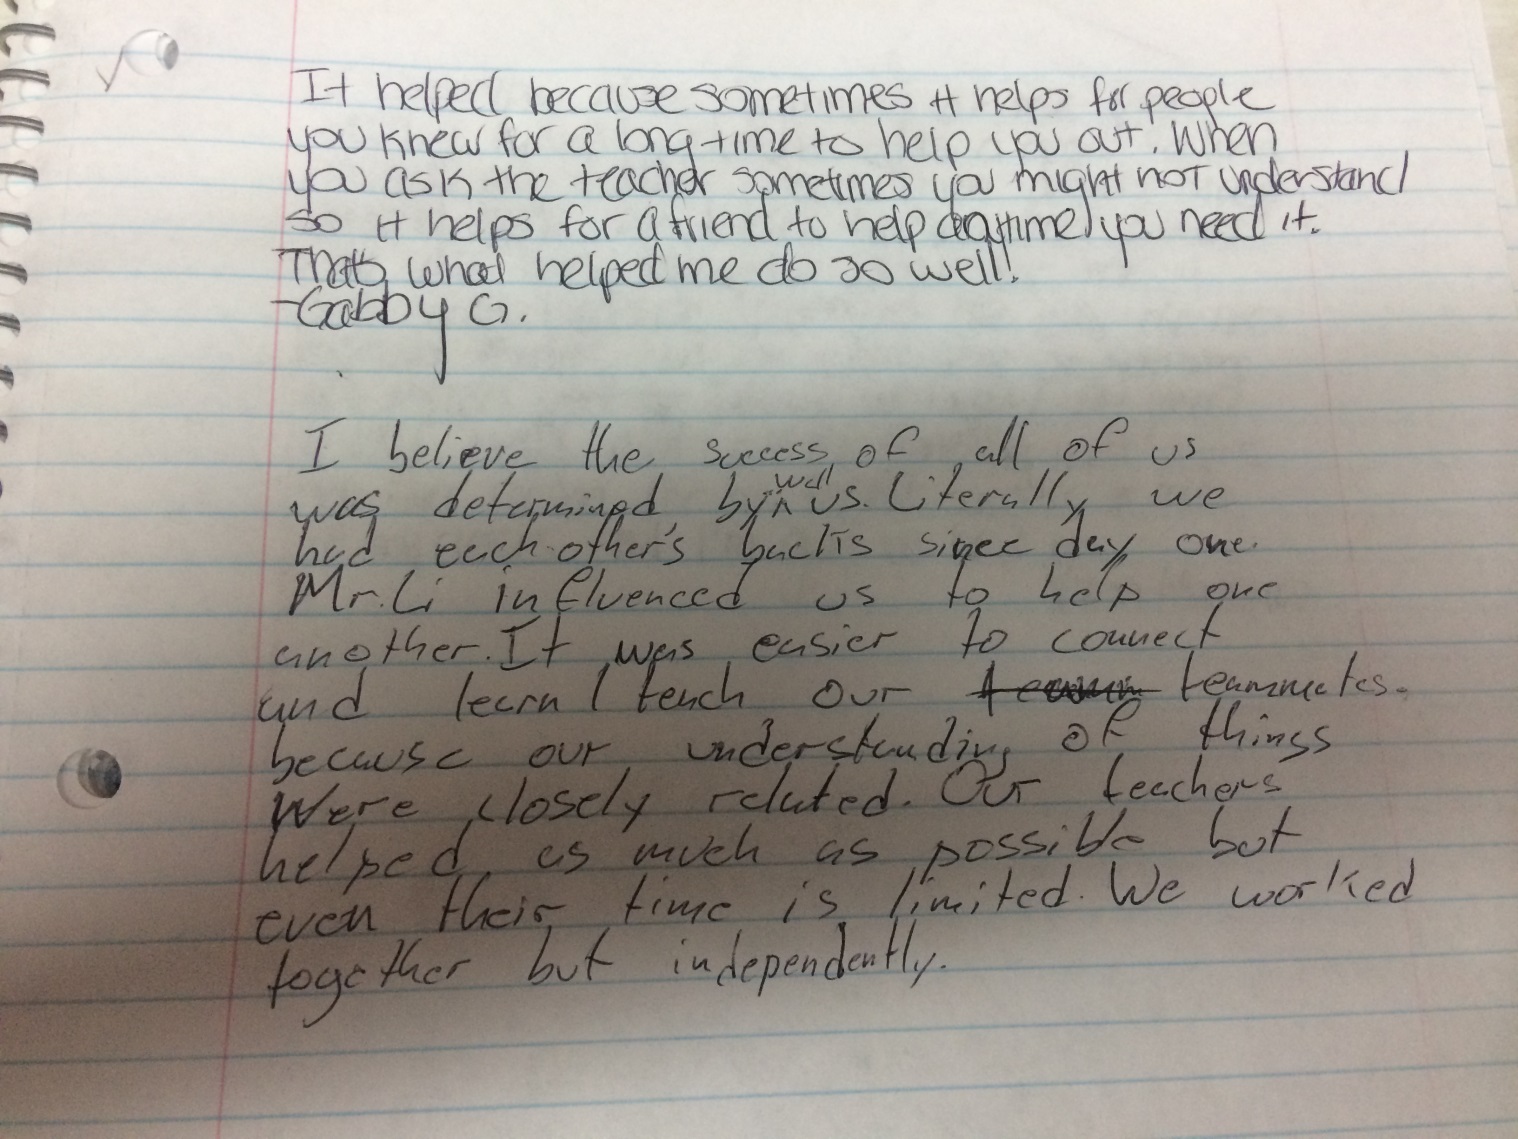 It helped because sometimes it helps for people
you knew for a long time to help you out. When
you ask the teacher sometimes you might not understand
so it helps for a friend to help anytime you need it.
That's what helped me do so well!
-Gabby G.
I believe the success of all of us
was determined by well us. Literally we
had each other's backs since day one.
Mr. Li influenced us to help one
another. It was easier to connect
and learn / teach our teammates.
because our understanding of things
were closely related. Our teachers
helped as much as possible but
even their time is limited. We worked
together but independently.